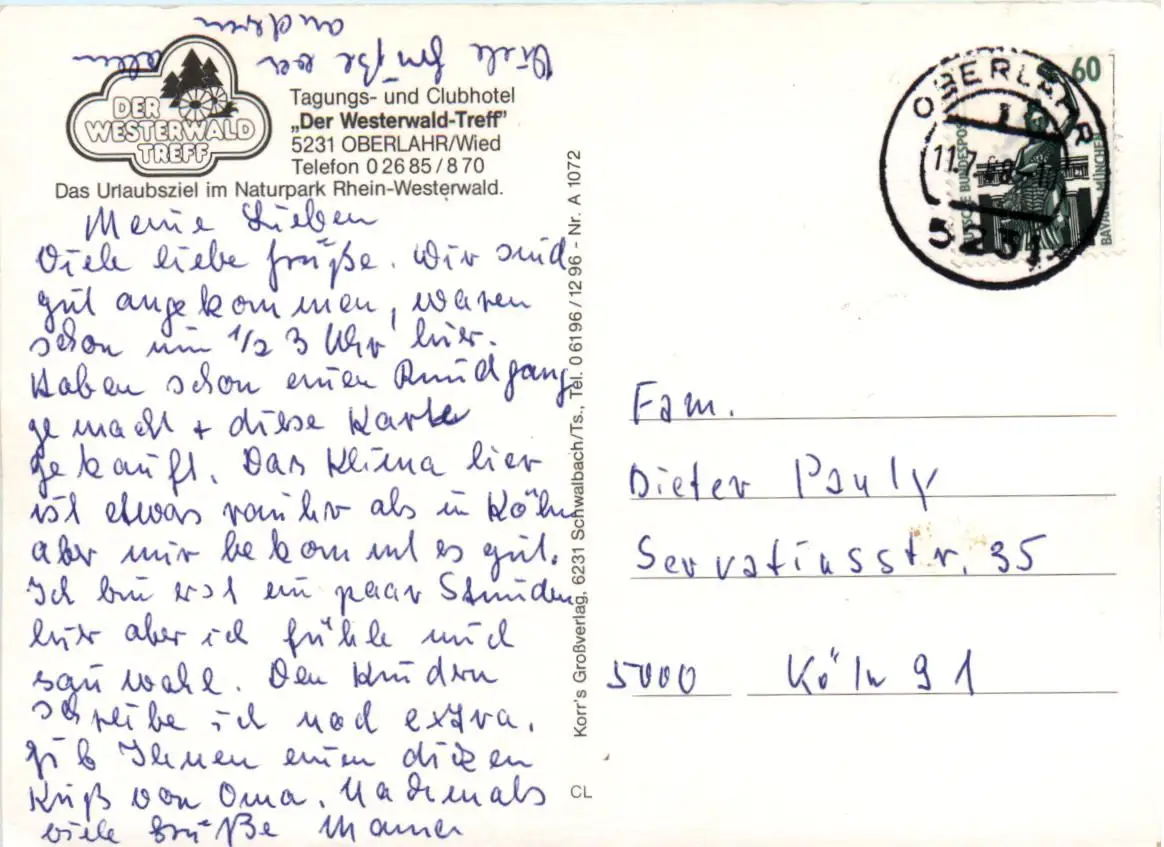 Viele Grüße von allen
anderen
DER
WESTERWALD
TREFF
Tagungs- und Clubhotel
„Der Westerwald-Treff"
5231 OBERLAHR/Wied
Telefon 0 26 85 / 8 70
Das Urlaubsziel im Naturpark Rhein-Westerwald.
Meine Lieben
Viele liebe Grüße. Wir sind
gut angekommen, waren
schon um 1/2 3 Uhr hier.
Haben schon einen Rundgang
gemacht + diese Karte
gekauft. Das Klima hier
ist etwas rauher als in Köln
aber mir bekommt es gut.
Ich bin erst ein paar Stunden
hier aber ich fühle mich
sauwohl. Den Kindern
schreibe ich noch extra.
gib Ihnen einen dicken
Kuß von Oma. Nochmals
viele Grüße Mama
Korr's Großverlag, 6231 Schwalbach/Ts., Tel. 0 61 96 / 12 96 - Nr. A 1072
CL
OBERLAHR
5231
60
DEUTSCHE BUNDESPOST
MÜNCHEN
Fam.
Dieter Pauly
Servatiusstr. 35
5000 Köln 91